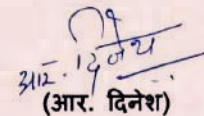 आर. दिनेश
(आर. दिनेश)